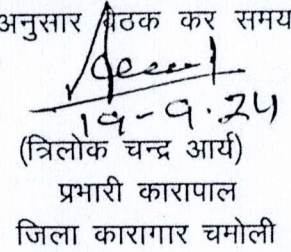 अनुसार बैठक कर समय
19-9-24
(त्रिलोक चन्द्र आर्य)
प्रभारी कारापाल
जिला कारागार चमोली